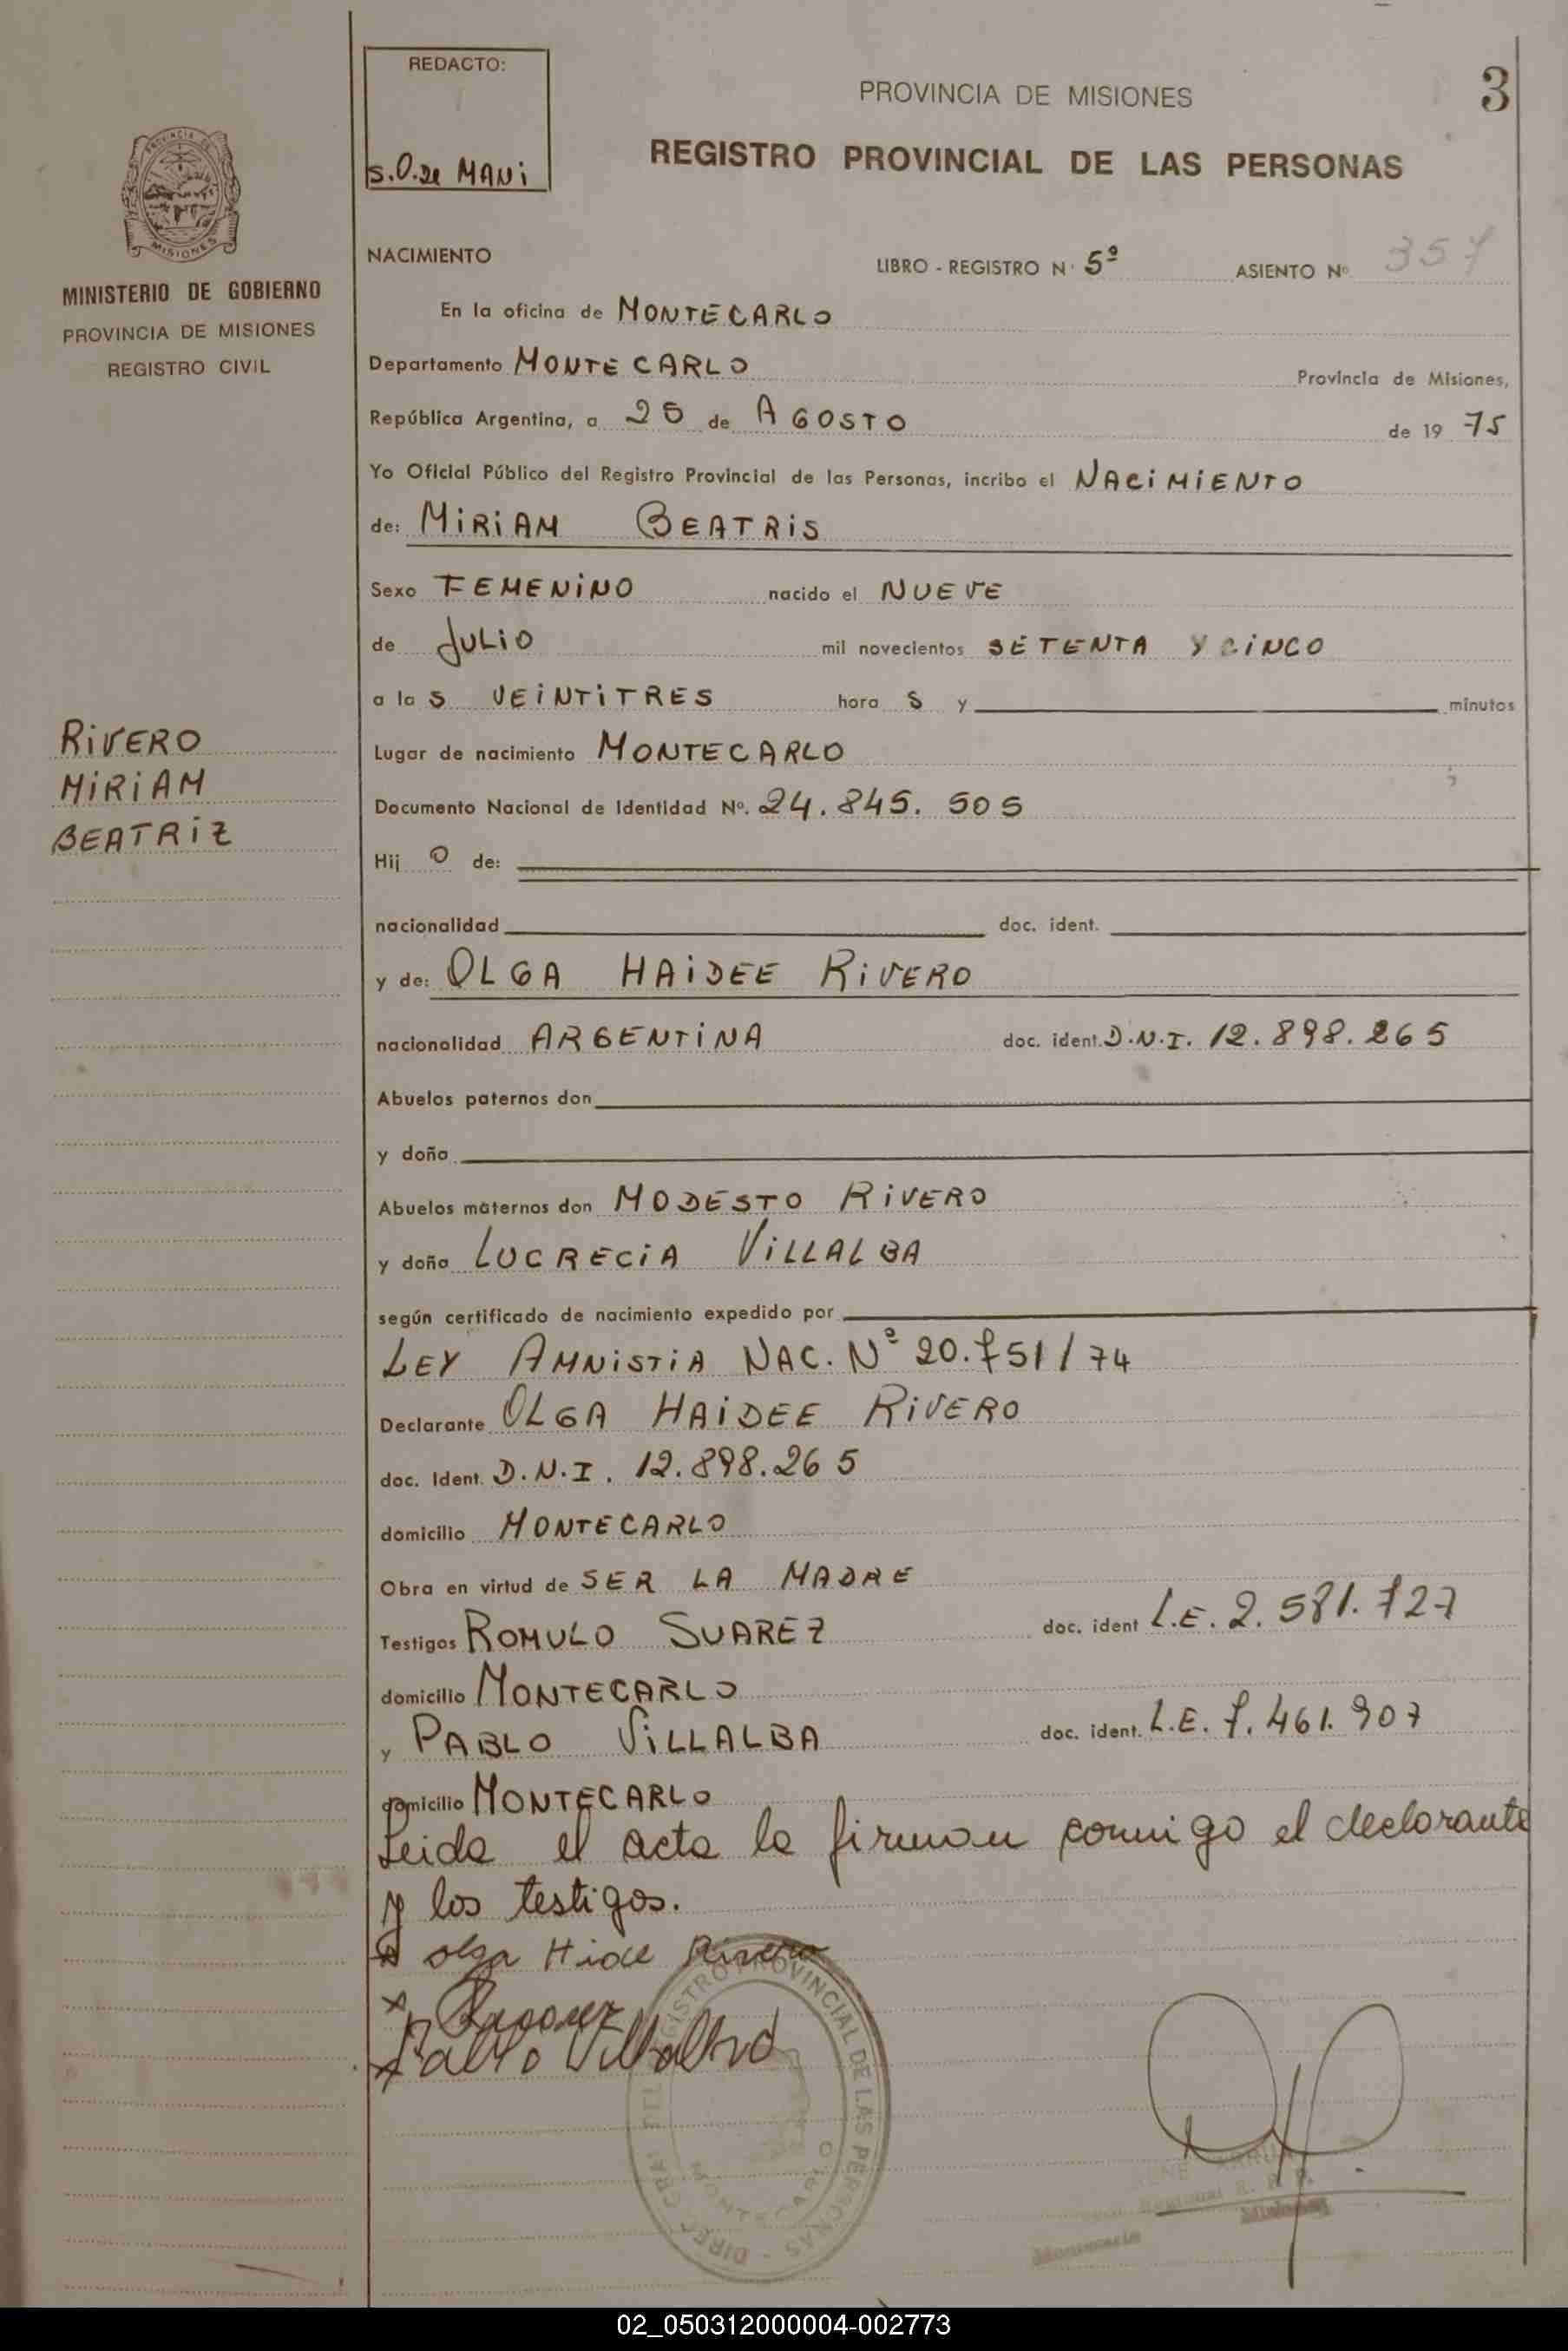 REDACTO:
S. O. de MANI
PROVINCIA DE MISIONES
3
REGISTRO PROVINCIAL DE LAS PERSONAS
MISIONES
MINISTERIO DE GOBIERNO
PROVINCIA DE MISIONES
REGISTRO CIVIL
RIVERO
MIRIAM
BEATRIZ
NACIMIENTO
LIBRO - REGISTRO Nº 5º ASIENTO Nº 357
En la oficina de MONTECARLO
Departamento MONTECARLO Provincia de Misiones,
República Argentina, a 25 de AGOSTO de 1975
Yo Oficial Público del Registro Provincial de las Personas, incribo el NACIMIENTO
de: MIRIAM BEATRIS
Sexo FEMENINO nacido el NUEVE
de JULIO mil novecientos SETENTA Y CINCO
a las VEINTITRES horas y minutos
Lugar de nacimiento MONTECARLO
Documento Nacional de Identidad Nº. 24.845.505
Hijo de:
nacionalidad doc. ident.
y de: OLGA HAIDEE RIVERO
nacionalidad ARGENTINA doc. ident. D.N.I. 12.898.265
Abuelos paternos don
y doña
Abuelos maternos don MODESTO RIVERO
y doña LUCRECIA VILLALBA
según certificado de nacimiento expedido por
LEY AMNISTIA NAC. Nº 20.751/74
Declarante OLGA HAIDEE RIVERO
doc. Ident. D.N.I. 12.898.265
domicilio MONTECARLO
Obra en virtud de SER LA MADRE
Testigos ROMULO SUAREZ doc. ident L.E. 2.581.727
domicilio MONTECARLO
y PABLO VILLALBA doc. ident. L.E. 7.461.907
domicilio MONTECARLO
Leida el acta la firman conmigo el declarante
y los testigos.
olga Hide Rivero
Pablo Villalba
DIREC. GRAL DEL REGISTRO PROVINCIAL DE LAS PERSONAS
MONTECARLO
02_050312000004-002773